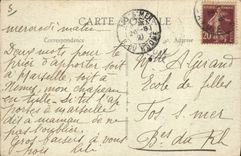 CARTE POSTALE
Correspondance
Adresse
mercredi matin
Deux mots pour te
prier d'apporter soit
à Marseille, soit à
Nîmes, mon chapeau
en tulle. Si tu l'ap
portes à Marseille
dit à maman de ne
pas l'oublier.
Gros baisers à vous
trois
Mlle A. Girard
Ecole de filles
Fos s. mer
Bses du Rh